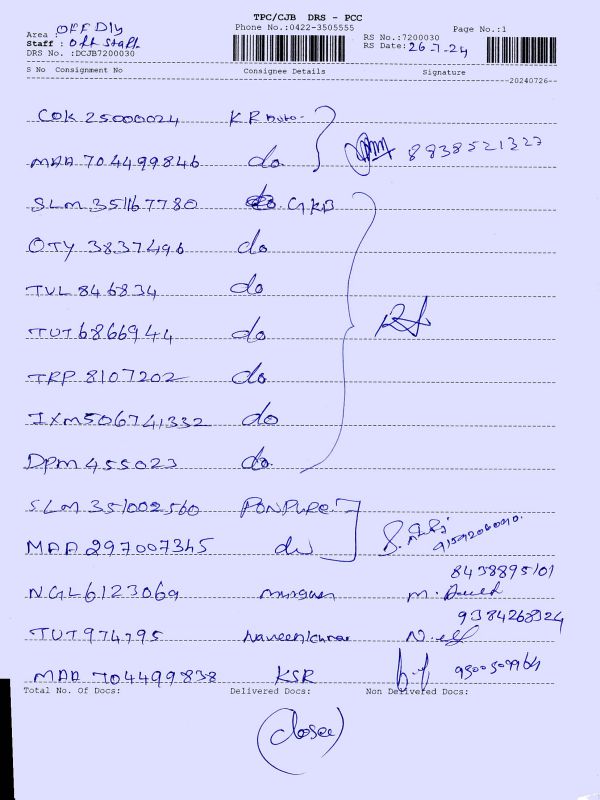 TPC/CJB DRS - PCC
Area : OFF DLY Phone No.:0422-3505555 Page No.:1
Staff : Off Staff RS No.:7200030
DRS No. :DCJB7200030 RS Date: 26-7-24
S No Consignment No Consignee Details Signature
20240726
COK 25000024 K R Auto-
MAA 704499846 do 8838521327
SLM 351167780 GKB
OTY 3837496 do
TVL 846834 do
TUT 6866944 do
TRP 8107202 do
IXM506741332 do
DPM 455023 do
SLM 351002560 PONPURE
MAA 297007345 do
8438895101
NGL6123069 murugan M.
9384268324
TUT974795 Naveenkumar
MAA 704499838 KSR
Total No. Of Docs: Delivered Docs: Non Delivered Docs:
(closed)